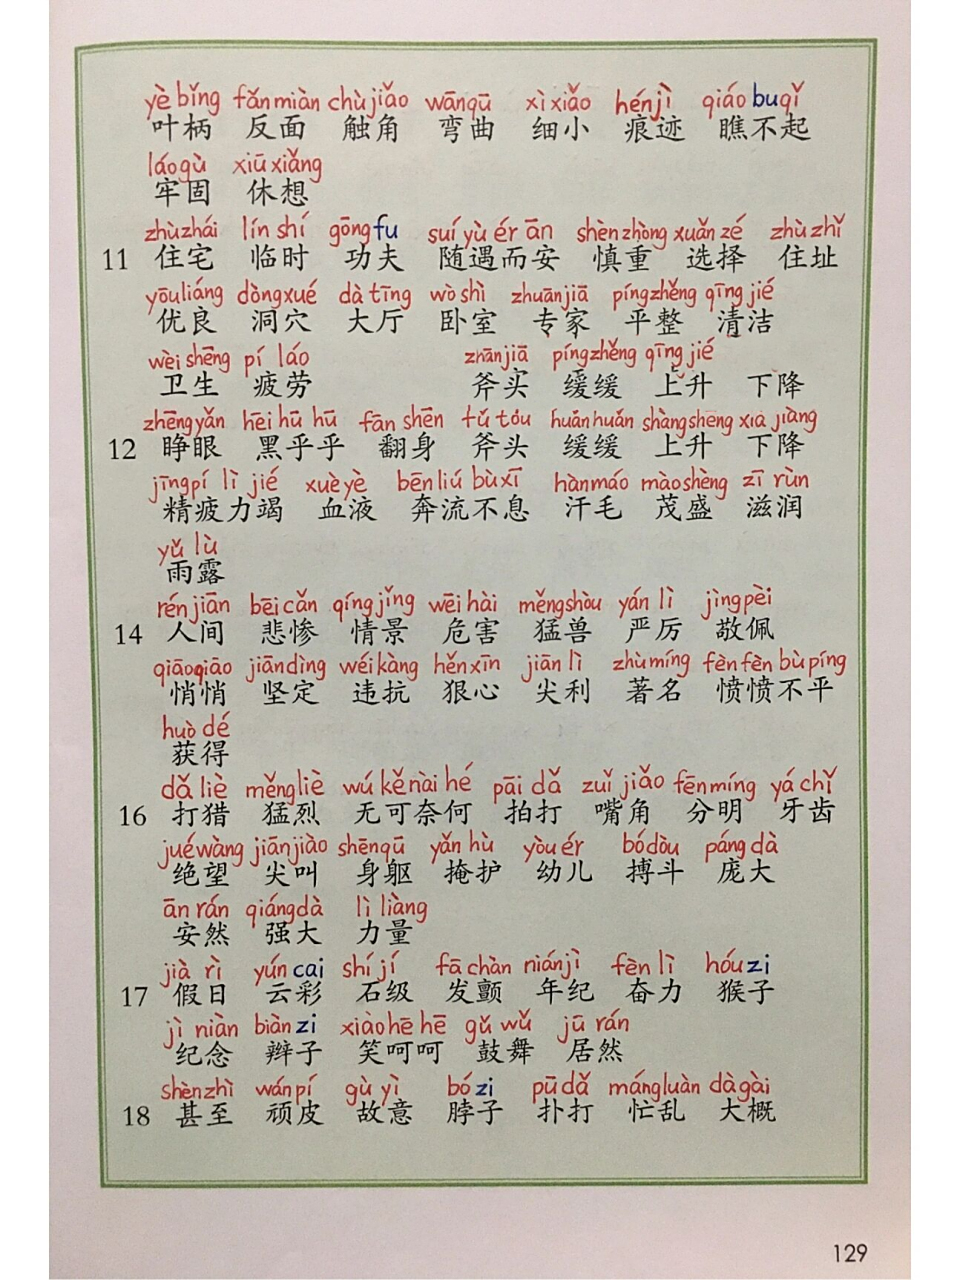 yè bǐng fǎn miàn chù jiǎo wān qū xì xiǎo hén jì qiáo bu qǐ
叶柄 反面 触角 弯曲 细小 痕迹 瞧不起
láo gù xiū xiǎng
牢固 休想
zhù zhái lín shí gōng fu suí yù ér ān shèn zhòng xuǎn zé zhù zhǐ
11 住宅 临时 功夫 随遇而安 慎重 选择 住址
yōu liáng dòng xué dà tīng wò shì zhuān jiā píng zhěng qīng jié
优良 洞穴 大厅 卧室 专家 平整 清洁
wèi shēng pí láo zhān jiā píng zhěng qīng jié
卫生 疲劳 斧头 缓缓 上升 下降
zhēng yǎn hēi hū hū fān shēn fǔ tóu huǎn huǎn shàng shēng xià jiàng
12 睁眼 黑乎乎 翻身 斧头 缓缓 上升 下降
jīng pí lì jié xuè yè bēn liú bù xī hàn máo mào shèng zī rùn
精疲力竭 血液 奔流不息 汗毛 茂盛 滋润
yǔ lù
雨露
rén jiān bēi cǎn qíng jǐng wēi hài měng shòu yán lì jìng pèi
14 人间 悲惨 情景 危害 猛兽 严厉 敬佩
qiāo qiāo jiān dìng wéi kàng hěn xīn jiān lì zhù míng fèn fèn bù píng
悄悄 坚定 违抗 狠心 尖利 著名 愤愤不平
huò dé
获得
dǎ liè měng liè wú kě nài hé pāi dǎ zuǐ jiǎo fēn míng yá chǐ
16 打猎 猛烈 无可奈何 拍打 嘴角 分明 牙齿
jué wàng jiān jiào shēn qū yǎn hù yòu ér bó dòu páng dà
绝望 尖叫 身躯 掩护 幼儿 搏斗 庞大
ān rán qiáng dà lì liàng
安然 强大 力量
jià rì yún cai shí jí fā chàn nián jì fèn lì hóu zi
17 假日 云彩 石级 发颤 年纪 奋力 猴子
jì niàn biàn zi xiào hē hē gǔ wǔ jū rán
纪念 辫子 笑呵呵 鼓舞 居然
shèn zhì wán pí gù yì bó zi pū dǎ máng luàn dà gài
18 甚至 顽皮 故意 脖子 扑打 忙乱 大概
129